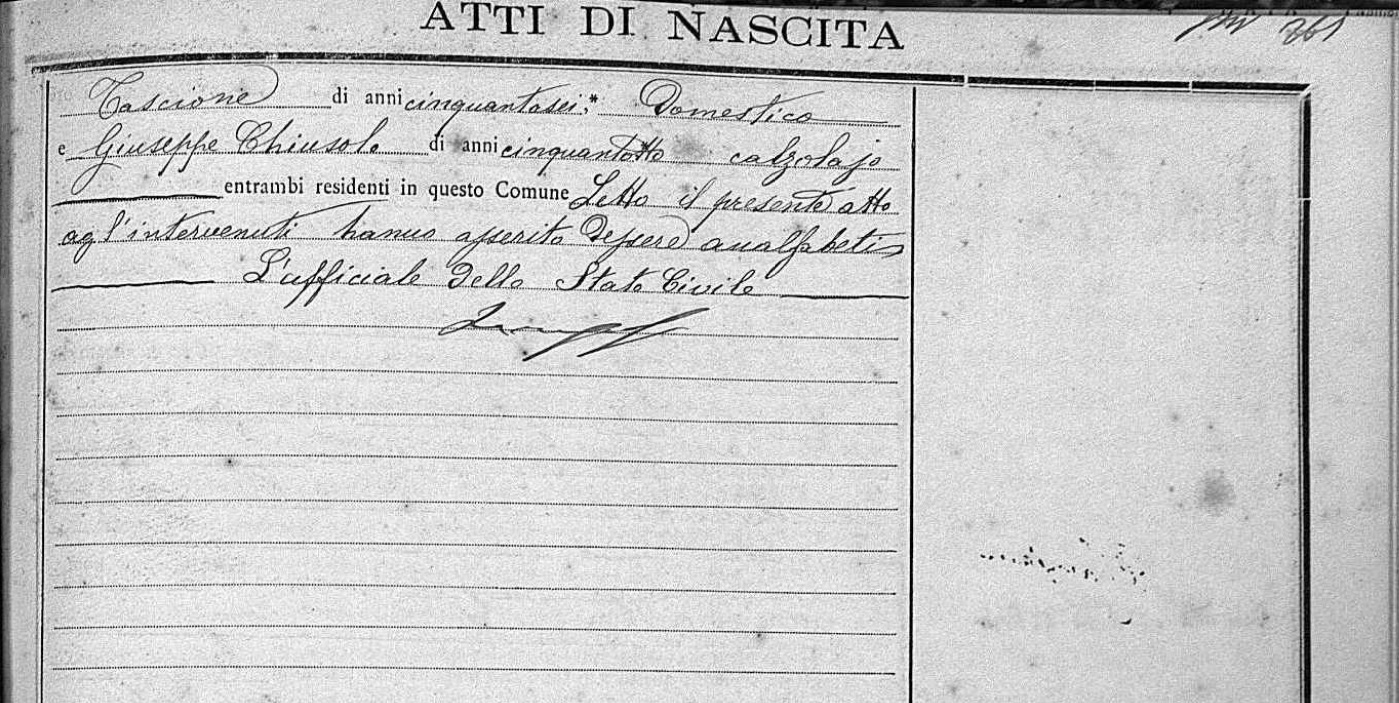 ATTI DI NASCITA
Tascione di anni cinquantasei,* Domestico
e Giuseppe Chiusolo di anni cinquantotto calzolajo
entrambi residenti in questo Comune Letto il presente atto
agl'intervenuti hanno asserito d'essere analfabeti
L'ufficiale dello Stato Civile